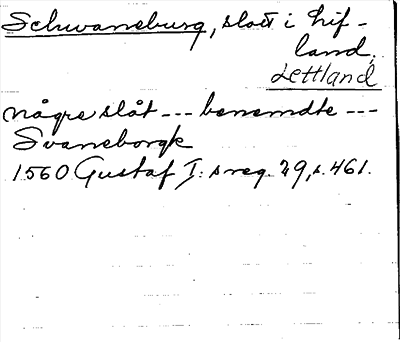 Schwaneburg, slott i Lif-
land,
Lettland
någre slåt --- benemdte ---
Svaneborgk
1560 Gustaf I: s reg. 29, s. 461.